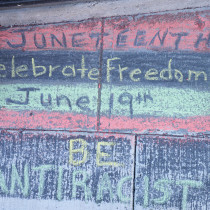 JUNETEENTH
Celebrate Freedom
June 19TH
BE
ANTIRACIST